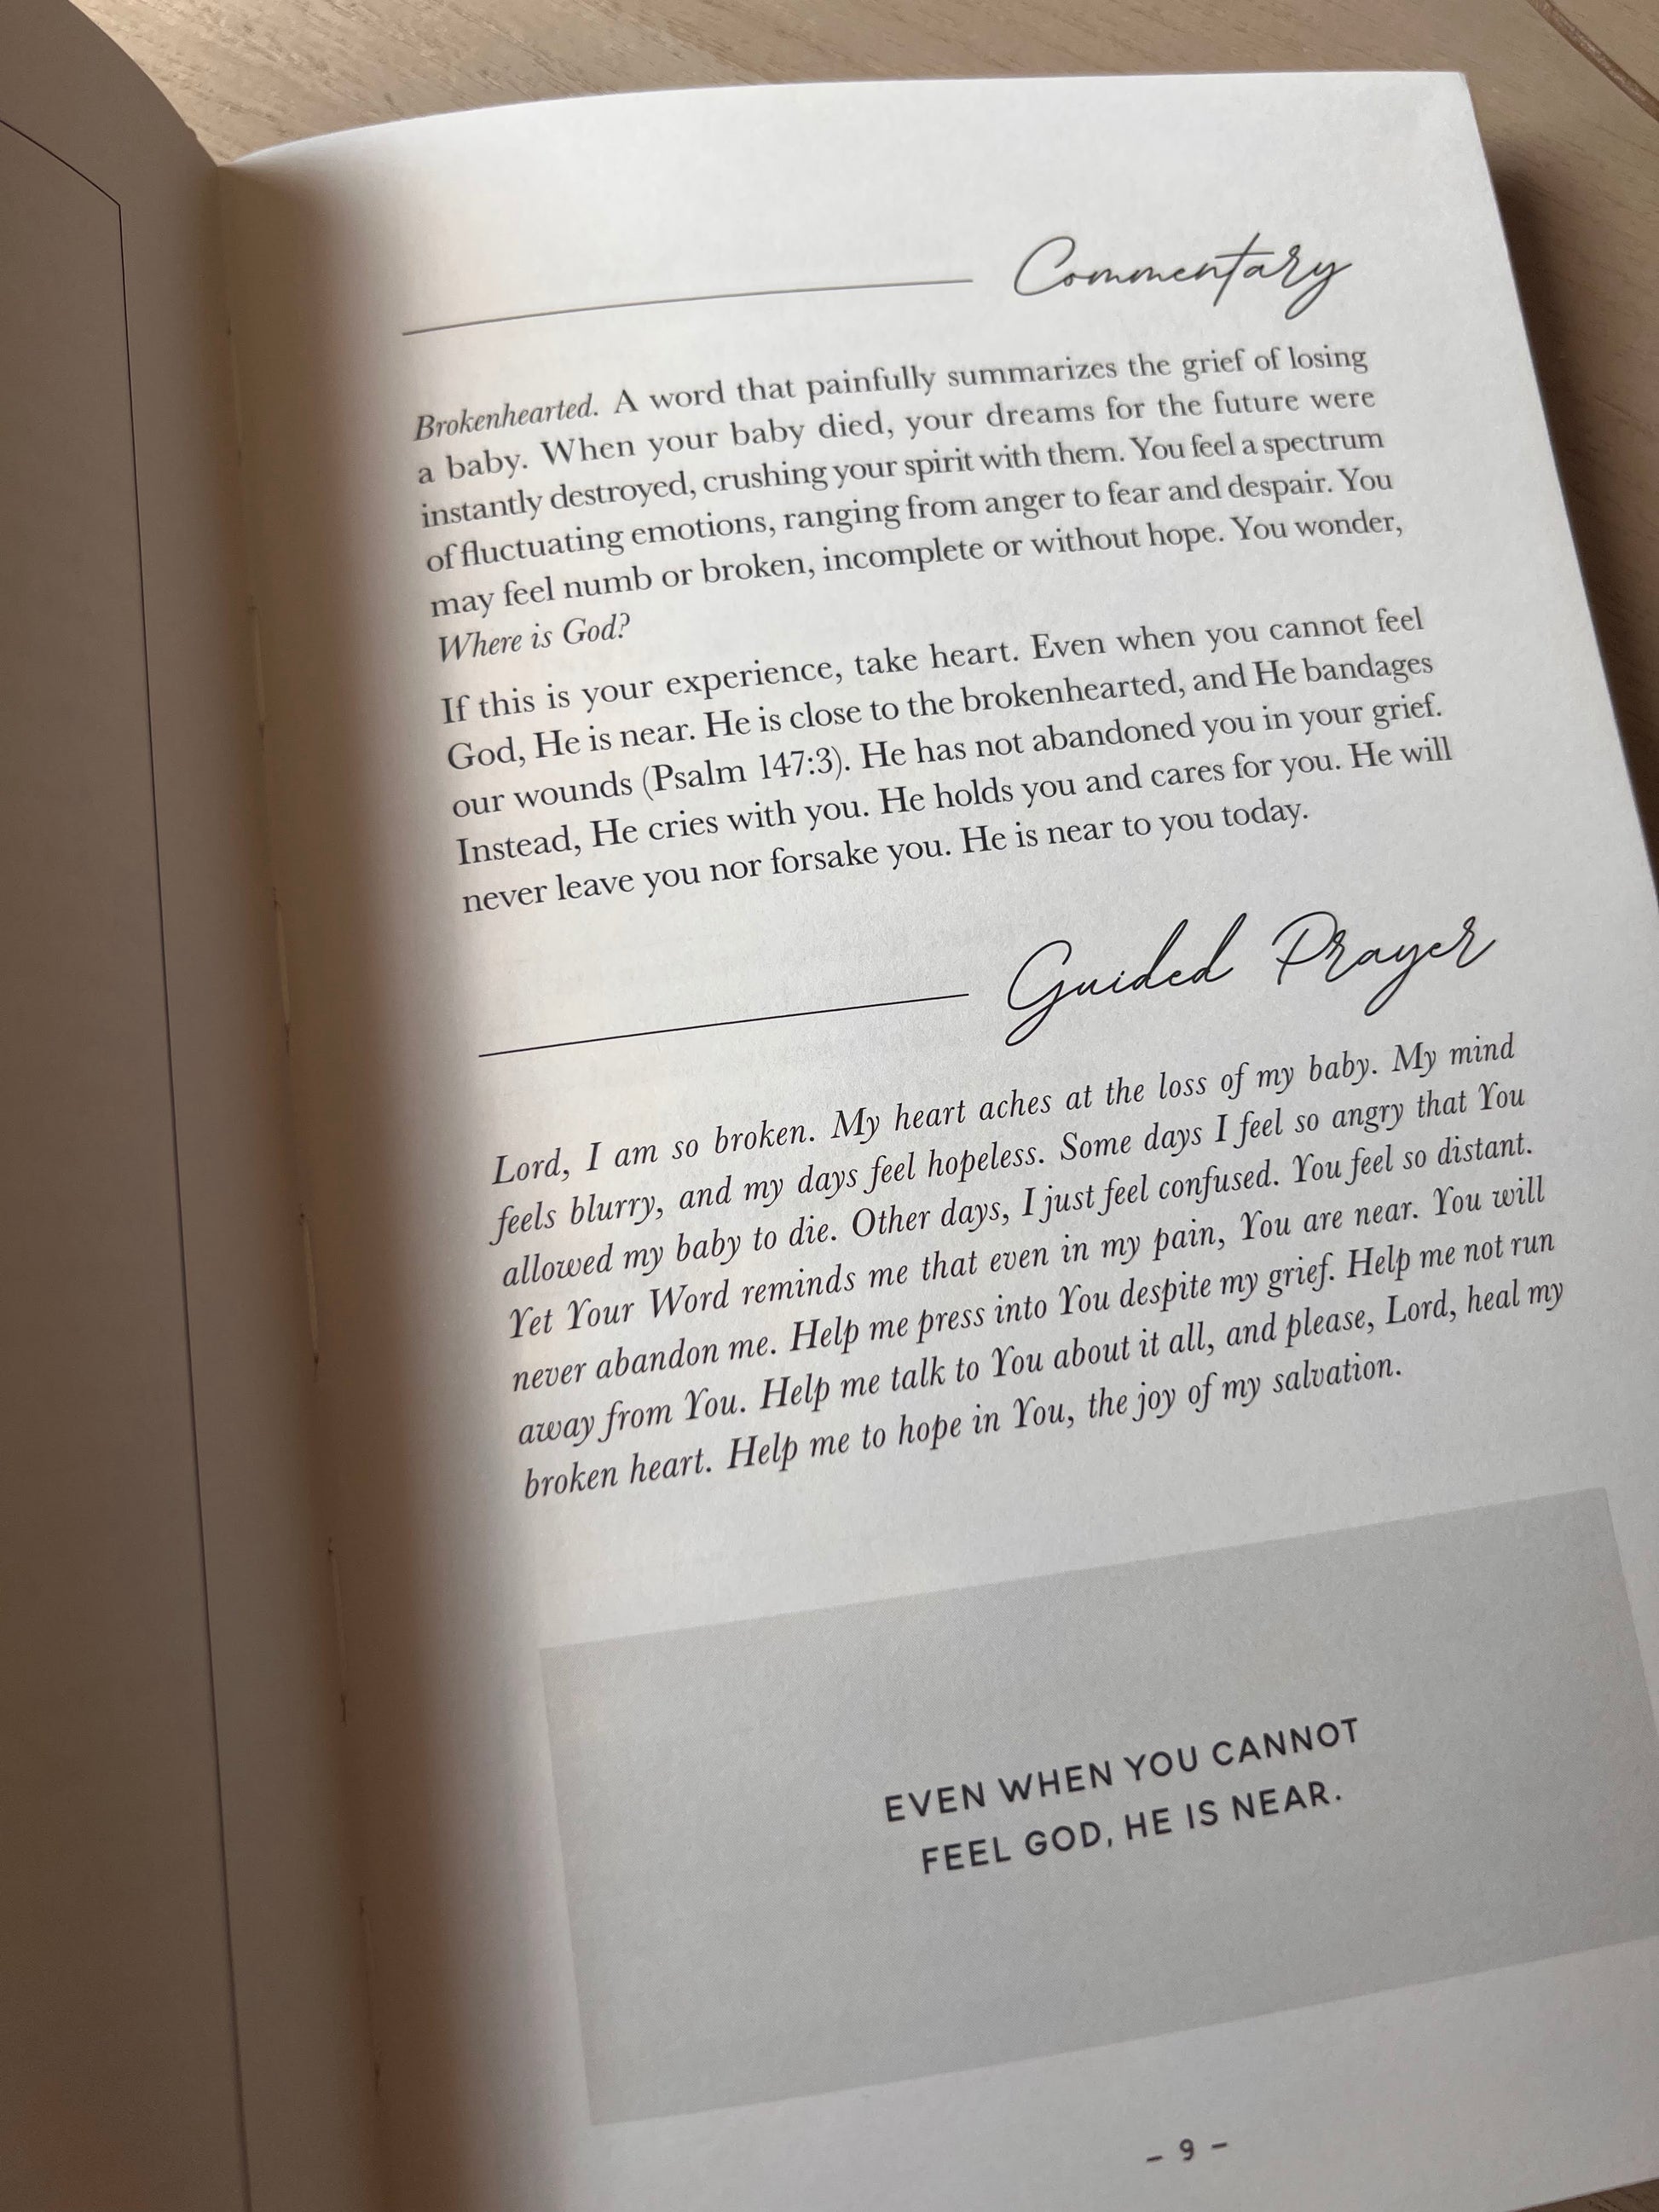 Commentary
Brokenhearted. A word that painfully summarizes the grief of losing
a baby. When your baby died, your dreams for the future were
instantly destroyed, crushing your spirit with them. You feel a spectrum
of fluctuating emotions, ranging from anger to fear and despair. You
may feel numb or broken, incomplete or without hope. You wonder,
Where is God?
If this is your experience, take heart. Even when you cannot feel
God, He is near. He is close to the brokenhearted, and He bandages
our wounds (Psalm 147:3). He has not abandoned you in your grief.
Instead, He cries with you. He holds you and cares for you. He will
never leave you nor forsake you. He is near to you today.
Guided Prayer
Lord, I am so broken. My heart aches at the loss of my baby. My mind
feels blurry, and my days feel hopeless. Some days I feel so angry that You
allowed my baby to die. Other days, I just feel confused. You feel so distant.
Yet Your Word reminds me that even in my pain, You are near. You will
never abandon me. Help me press into You despite my grief. Help me not run
away from You. Help me talk to You about it all, and please, Lord, heal my
broken heart. Help me to hope in You, the joy of my salvation.
EVEN WHEN YOU CANNOT
FEEL GOD, HE IS NEAR.
– 9 –